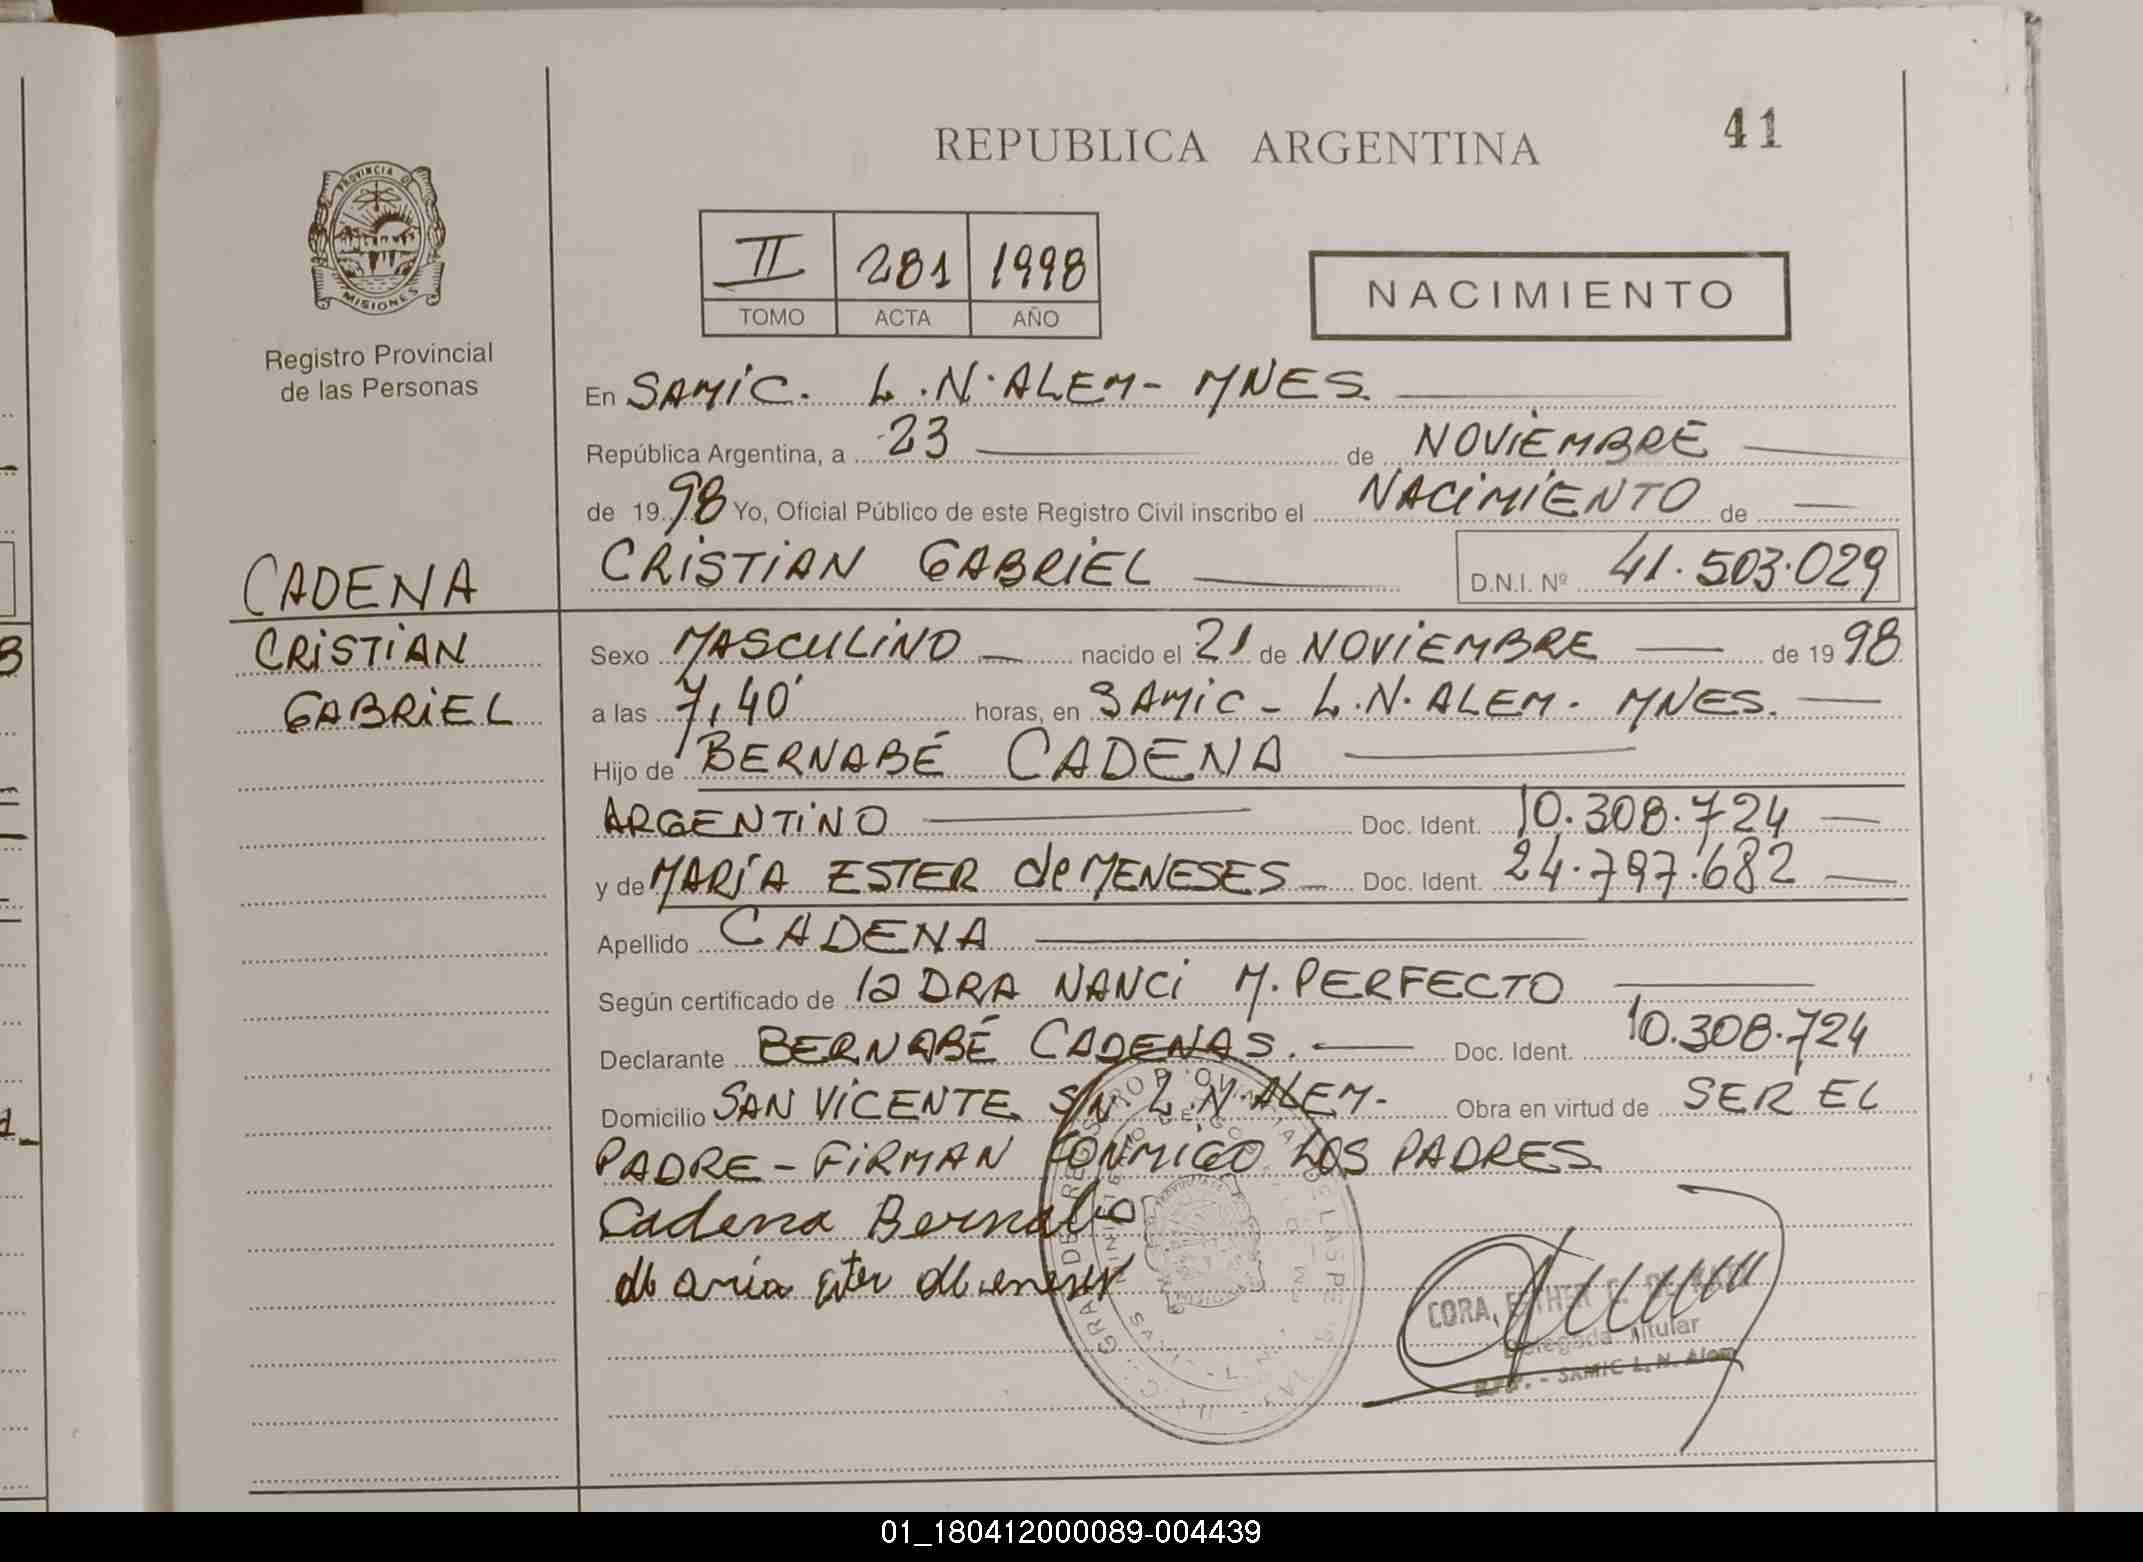 REPUBLICA ARGENTINA
41
PROVINCIA DE
MISIONES
Registro Provincial
de las Personas
II 281 1998
TOMO ACTA AÑO
NACIMIENTO
En SAMIC. L.N. ALEM - MNES.
República Argentina, a 23 de NOVIEMBRE
de 1998 Yo, Oficial Público de este Registro Civil inscribo el NACIMIENTO de
CRISTIAN GABRIEL D.N.I. Nº 41.503.029
CADENA
CRISTIAN
GABRIEL
Sexo MASCULINO nacido el 21 de NOVIEMBRE de 1998
a las 7,40' horas, en SAMIC - L.N. ALEM. MNES.
Hijo de BERNABÉ CADENA
ARGENTINO Doc. Ident. 10.308.724
y de MARÍA ESTER de MENESES Doc. Ident. 24.797.682
Apellido CADENA
Según certificado de la DRA NANCI M. PERFECTO
Declarante BERNABÉ CADENAS. Doc. Ident. 10.308.724
Domicilio SAN VICENTE S/N. L.N. ALEM - Obra en virtud de SER EL
PADRE - FIRMAN CONMIGO LOS PADRES
Cadena Bernabe
CORA, ESTHER
Delegada Titular
SAMIC L. N. Alem
01_180412000089-004439